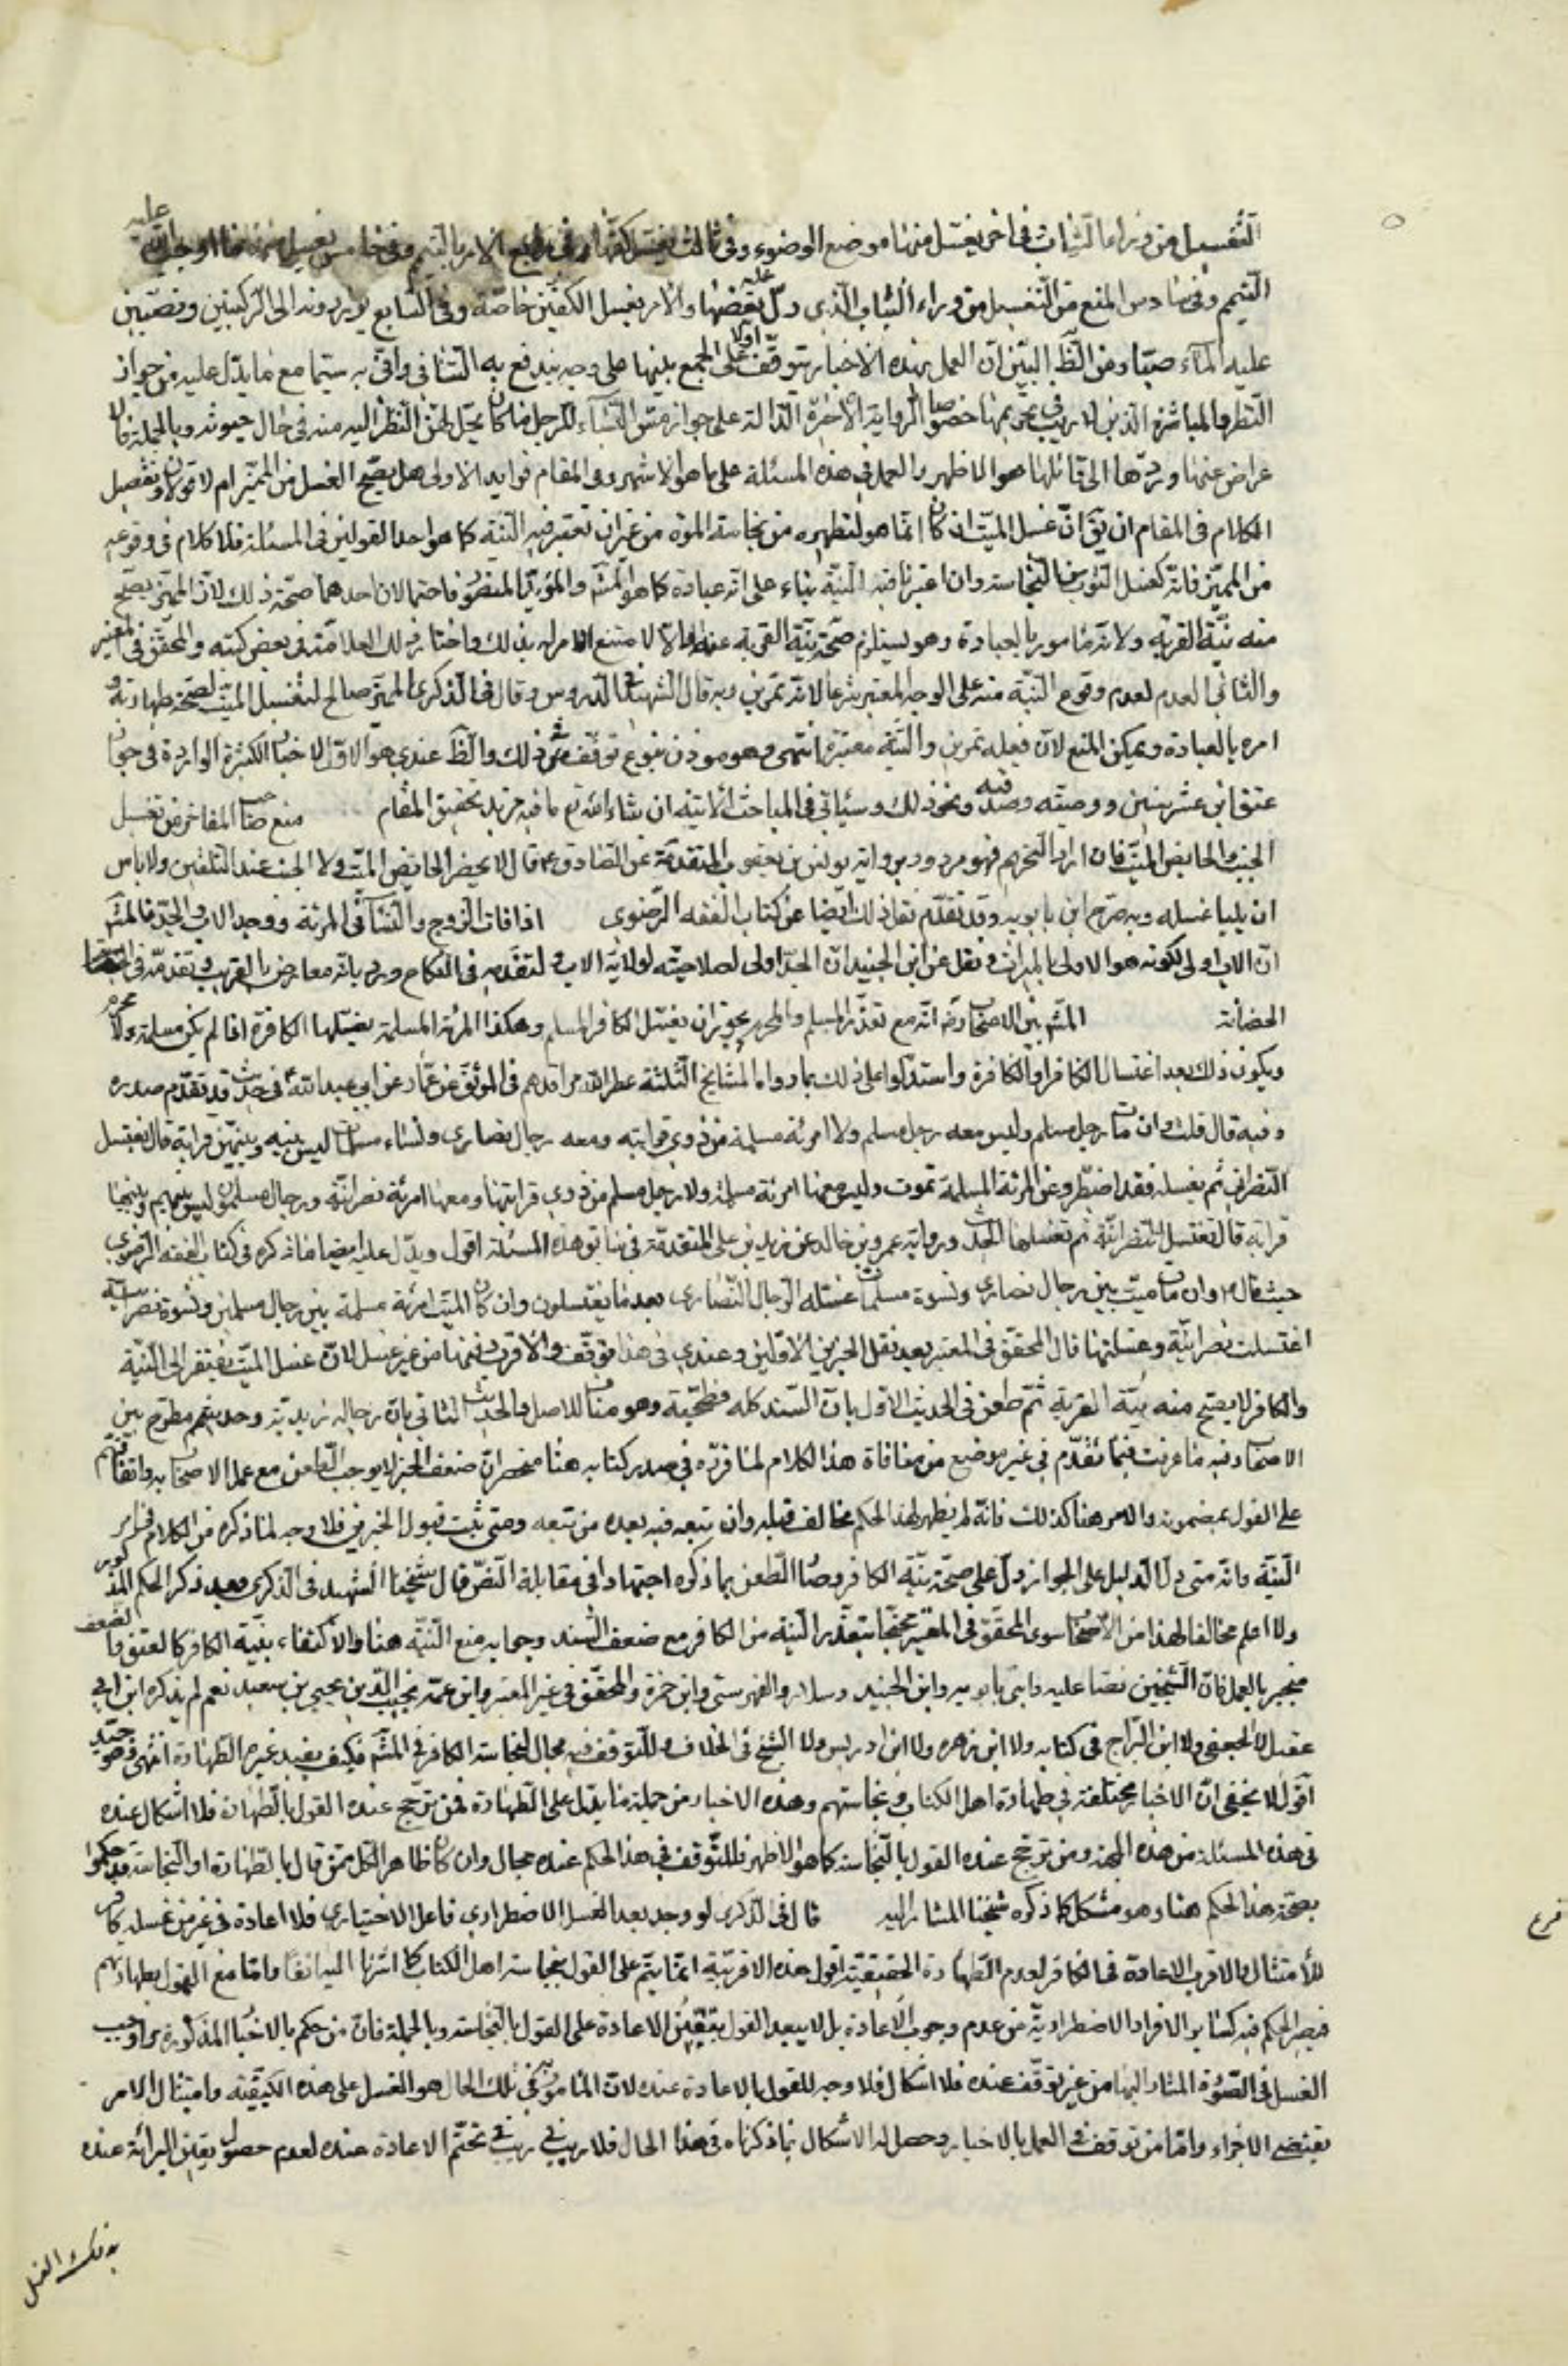 التغسيل من وراء الثياب في اخر يغسل منها موضع الوضوء وفي ثالث يغسل كفيها وفي رابع الامر بالتيمم وفي خامس
التيمم وفي سادس المنع من التغسيل من وراء الثياب الذي دل عليه بعضها والامر بغسل الكفين خاصة وفي السابع يؤزرونه الى الركبتين ويصببن
عليه الماء صبا ومن الظ البين ان العمل بهذه الاخبار يتوقف اولا على الجمع بينها على وجه يندفع به التنافي واني به سيما مع ما يدل عليه من جواز
النظر والمباشرة الذين لا ريب في تحريمهما خصوصا الرواية الاخيرة الدالة على جواز مس النساء للرجل ما كان يحل لهن النظر اليه منه في حال حيوته وبالجملة فالا
عراض عنها وردها الى قائلها هو الاظهر والعمل في هذه المسئلة على ما هو الاشهر وفي المقام فوايد الاولى هل يصح الغسل من المميز ام لا قولان وتفصيل
الكلام في المقام ان يق ان غسل الميت ان كان انما هو لتطهيره من نجاسة الموت من غير ان تعتبر فيه النية كما هو احد القولين في المسئلة فلا كلام في وقوعه
من المميز فانه كغسل الثوب من النجاسة وان اعتبرنا فيه النية بناء على انه عبادة كما هو المش والمؤيد المنصور فاحتمالان احدهما صحة ذلك لان المميز يصح
منه نية القربة ولانه مامور بالعبادة وهو يستلزم صحة نية القربة عنه والا لامتنع الامر له بذلك واختار ذلك العلامة في بعض كتبه والمحقق في المعتبر
والثاني العدم لعدم وقوع النية منه على الوجه المعتبر شرعا لانه تمرين وبه قال الشهيد في الدروس وقال في الذكرى المميز صالح لتغسيل الميت لصحة طهارته و
امره بالعبادة ويمكن المنع لان فعله تمرين والنية معتبرة انتهى وهو موذن بنوع توقف في ذلك والظ عندي هو الاول للاخبار الكثيرة الواردة في جواز
عتق ابن عشر سنين ووصيته وصدقته ونحو ذلك وسياتي في المباحث الاتية ان شاء الله تع ما فيه مزيد تحقيق المقام منع صاحب المفاخر من تغسيل
الجنب والحايض الميت فان اراد التحريم فهو مردود برواية يونس بن يعقوب المتقدمة عن الصادق ع قال لا يحضر الحايض الميت ولا الجنب عند التلقين ولا باس
ان يليا غسله وبه صرح ابن بابويه وقد تقدم نقل ذلك ايضا عن كتاب الفقه الرضوي اذا فات الزوج والنساء في المرئة ووجد الاب والجد فالمش
ان الاب اولى لكونه هو الاولى بالميراث ونقل عن ابن الجنيد ان الجد اولى لصلاحيته لولاية الاب ولتقدمه في النكاح ورد بانه معارض بالقرب وتقدمه في
الحضانة المش بين الاصحاب رض انه مع تعذر المسلم والمحرم يجوز ان يغسل الكافر المسلم وهكذا المرئة المسلمة يغسلها الكافرة اذا لم يكن مسلمة ولا محرم
ويكون ذلك بعد اغتسال الكافر او الكافرة واستدلوا على ذلك بما رواه المشايخ الثلثة عطر الله مراقدهم في الموثق عن عمار عن ابي عبد الله ع في حديث قد تقدم صدره
وفيه قال قلت فان مات رجل مسلم وليس معه رجل مسلم ولا امرئة مسلمة من ذوي قرابته ومعه رجال نصارى ونساء مسلمات ليس بينه وبينهن قرابة قال يغتسل
النصراني ثم يغسله فقد اضطر وعن المرئة المسلمة تموت وليس معها امرئة مسلمة ولا رجل مسلم من ذوي قرابتها ومعها امرئة نصرانية ورجال مسلمون ليس بينهم وبينها
قرابة قال تغتسل النصرانية ثم تغسلها الحديث ورواية عمرو بن خالد عن زيد بن علي المتقدمة في سابق هذه المسئلة اقول ويدل عليه ايضا ما ذكره في كتاب الفقه الرضوي
حيث قال ع وان مات ميت بين رجال نصارى ونسوة مسلمات غسله الرجال النصارى بعد ما يغتسلون وان كان الميت امرئة مسلمة بين رجال مسلمين ونسوة نصرانية
اغتسلت نصرانية وغسلتها قال المحقق في المعتبر بعد نقل الخبرين الاولين وعندي في هذا توقف والاقرب دفنها من غير غسل لان غسل الميت يفتقر الى النية
والكافر لا يصح منه نية القربة ثم طعن في الحديث الاول بان السند كله فطحية وهو مناف للاصل والحديث الثاني بان رجاله زيدية وحديثهم مطرح بين
الاصحاب وفيه ما عرفت فيما تقدم في غير موضع من منافاة هذا الكلام لما قرره في صدر كتابه هذا من ان ضعف الخبر لا يوجب الطعن مع عمل الاصحاب به واتفاقهم
على القول بمضمونه والامر هنا كذلك فانه لم يظهر لهذا الحكم مخالف قبله وان تبعه فيه بعده من تبعه ومتى ثبت قبول الخبرين فلا وجه لما ذكره من الكلام في امر
النية وانه متى دل الدليل على الجواز دل على صحة نية الكافر وصار الطعن بما ذكره اجتهادا في مقابلة النص قال شيخنا الشهيد في الذكرى بعد ذكر الحكم المذكور
ولا اعلم مخالفا لهذا من الاصحاب سوى المحقق في المعتبر محتجا بتعذر النية من الكافر مع ضعف السند وجوابه منع النية هنا والاكتفاء بنية الكافر كالعتق والضعف
منجبر بالعمل فان الشيخين نصا عليه وابني بابويه وابن الجنيد وسلار والصهرشتي وابن حمزة والمحقق في غير المعتبر وابن عمه نجيب الدين يحيى بن سعيد نعم لم يذكره ابن ابي
عقيل ولا الجعفي ولا ابن البراج في كتابيه ولا ابن زهره ولا ابن ادريس ولا الشيخ في الخلاف وللتوقف فيه مجال لنجاسة الكافر في المش فكيف يفيد غيره الطهارة انتهى وهو جيد
اقول لا يخفى ان الاخبار مختلفة في طهارة اهل الكتاب ونجاستهم وهذه الاخبار من جملة ما يدل على الطهارة فمن ترجح عنده القول بالطهارة فلا اشكال عنده
في هذه المسئلة من هذه الجهة ومن ترجح عنده القول بالنجاسة كما هو الاظهر فللتوقف في هذا الحكم عنده مجال وان كان ظاهر الكل ممن قال بالطهارة او النجاسة قد حكموا
بصحة هذا الحكم هنا وهو مشكل كما ذكره شيخنا المشار اليه قال في الذكرى لو وجد بعد الغسل الاضطراري فاعل الاختياري فلا اعادة في غير من غسله كافر
للامتثال والاقرب الاعادة في الكافر لعدم الطهارة الحقيقية اقول هذه الاقربية انما يتم على القول بنجاسة اهل الكتاب كما اشرنا اليه انفا واما مع القول بطهارتهم
فيصير الحكم فيه كساير الافراد الاضطرارية من عدم وجوب الاعادة بل لا يبعد القول بتعين الاعادة على القول بالنجاسة وبالجملة فان من حكم بالاخبار المذكورة واوجب
الغسل في الصورة المشار اليها من غير توقف عنده فلا اشكال فلا وجه للقول بالاعادة عنده لان المامور به في تلك الحال هو الغسل على هذه الكيفية وامتثال الامر
يقتضي الاجزاء واما من توقف في العمل بالاخبار وحصل له الاشكال بما ذكرناه في هذا الحال فلا ريب في تحتم الاعادة عنده لعدم حصول يقين البرائة عنده
فرع
بذلك الغسل